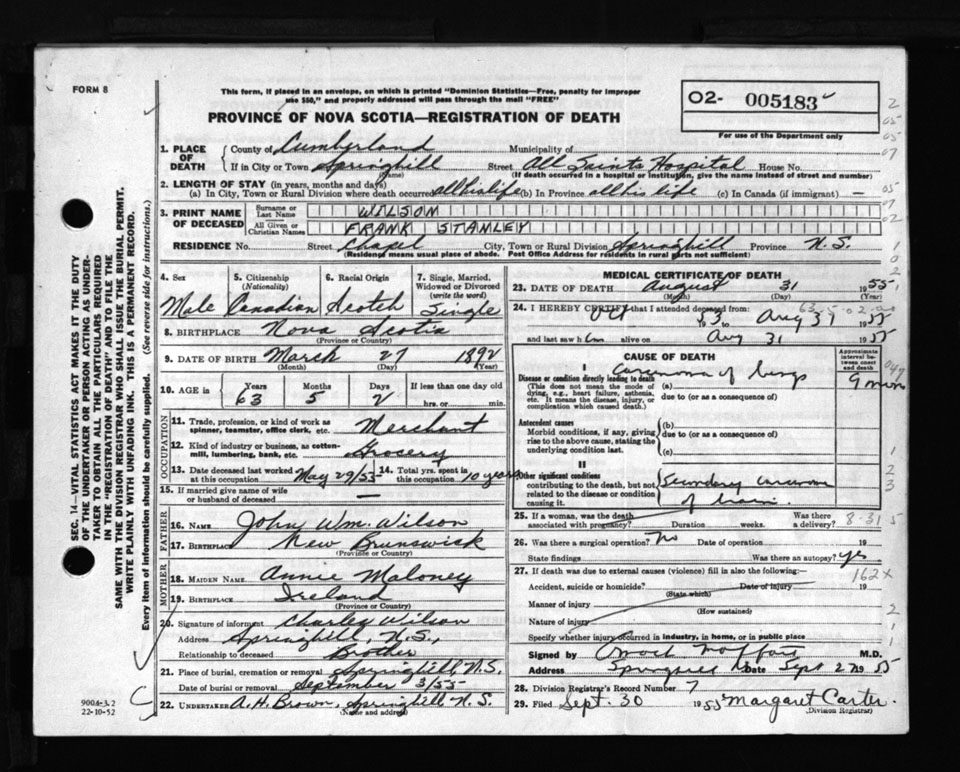 FORM 8
This form, if placed in an envelope, on which is printed "Dominion Statistics—Free, penalty for improper
use $50," and properly addressed will pass through the mail "FREE"
O2- 005183
For use of the Department only
PROVINCE OF NOVA SCOTIA—REGISTRATION OF DEATH
1. PLACE OF DEATH County of Cumberland Municipality of
If in City or Town Springhill (Name) Street All Saints Hospital House No.
(If death occurred in a hospital or institution, give the name instead of street and number)
2. LENGTH OF STAY (in years, months and days)
(a) In City, Town or Rural Division where death occurred all his life (b) In Province all his life (c) In Canada (if immigrant) —
3. PRINT NAME OF DECEASED Surname or Last Name WILSON
All Given or Christian Names FRANK STANLEY
RESIDENCE No. Street Chapel City, Town or Rural Division Springhill Province N.S.
(Residence means usual place of abode. Post Office Address for residents in rural parts not sufficient)
4. Sex 5. Citizenship (Nationality) 6. Racial Origin 7. Single, Married, Widowed or Divorced (write the word)
Male Canadian Scotch Single
8. BIRTHPLACE Nova Scotia
(Province or Country)
9. DATE OF BIRTH March 27 1892
(Month) (Day) (Year)
10. AGE in Years Months Days If less than one day old
63 5 2 hrs. or min.
OCCUPATION
11. Trade, profession, or kind of work as spinner, teamster, office clerk, etc. Merchant
12. Kind of industry or business, as cotton-mill, lumbering, bank, etc. Grocery
13. Date deceased last worked at this occupation May 29/55 14. Total yrs. spent in this occupation 10 years
15. If married give name of wife or husband of deceased —
FATHER
16. NAME John Wm. Wilson
17. BIRTHPLACE New Brunswick
(Province or Country)
MOTHER
18. MAIDEN NAME Annie Maloney
19. BIRTHPLACE Ireland
(Province or Country)
20. Signature of informant Charley Wilson
Address Springhill, N.S.,
Relationship to deceased Brother
21. Place of burial, cremation or removal Springhill, N.S.
Date of burial or removal September 3/55
22. UNDERTAKER A.H. Brown, Springhill N.S.
(Name and address)
MEDICAL CERTIFICATE OF DEATH
23. DATE OF DEATH August 31 1955
(Month) (Day) (Year)
24. I HEREBY CERTIFY that I attended deceased from:
Oct 53 to Aug 31 1955
and last saw h im alive on Aug 31 1955
CAUSE OF DEATH
Approximate interval between onset and death
I
Disease or condition directly leading to death (a) Carcinoma of lungs 9 mons
(This does not mean the mode of dying, e.g., heart failure, asthenia, etc. It means the disease, injury, or complication which caused death.) due to (or as a consequence of)
Antecedent causes
Morbid conditions, if any, giving rise to the above cause, stating the underlying condition last. (b) due to (or as a consequence of)
(c)
II
Other significant conditions contributing to the death, but not related to the disease or condition causing it. Secondary carcinoma of brain
25. If a woman, was the death associated with pregnancy? Duration weeks. Was there a delivery? 8-31 5
26. Was there a surgical operation? No Date of operation 19
State findings Was there an autopsy? yes
27. If death was due to external causes (violence) fill in also the following: 162x
Accident, suicide or homicide? (State which) Date of injury 19
Manner of injury
(How sustained)
Nature of injury
Specify whether injury occurred in industry, in home, or in public place
Signed by M.D.
Address Springhill Date Sept 27 1955
28. Division Registrar's Record Number 7
29. Filed Sept. 30 1955 Margaret Carter.
(Division Registrar)
SEC. 14.—VITAL STATISTICS ACT MAKES IT THE DUTY
OF THE UNDERTAKER OR PERSON ACTING AS UNDER-
TAKER TO OBTAIN ALL THE PARTICULARS REQUIRED
IN THE "REGISTRATION OF DEATH" AND TO FILE THE
SAME WITH THE DIVISION REGISTRAR WHO SHALL ISSUE THE BURIAL PERMIT.
WRITE PLAINLY WITH UNFADING INK. THIS IS A PERMANENT RECORD.
Every item of information should be carefully supplied. (See reverse side for instructions.)
9004-3.2
22-10-52